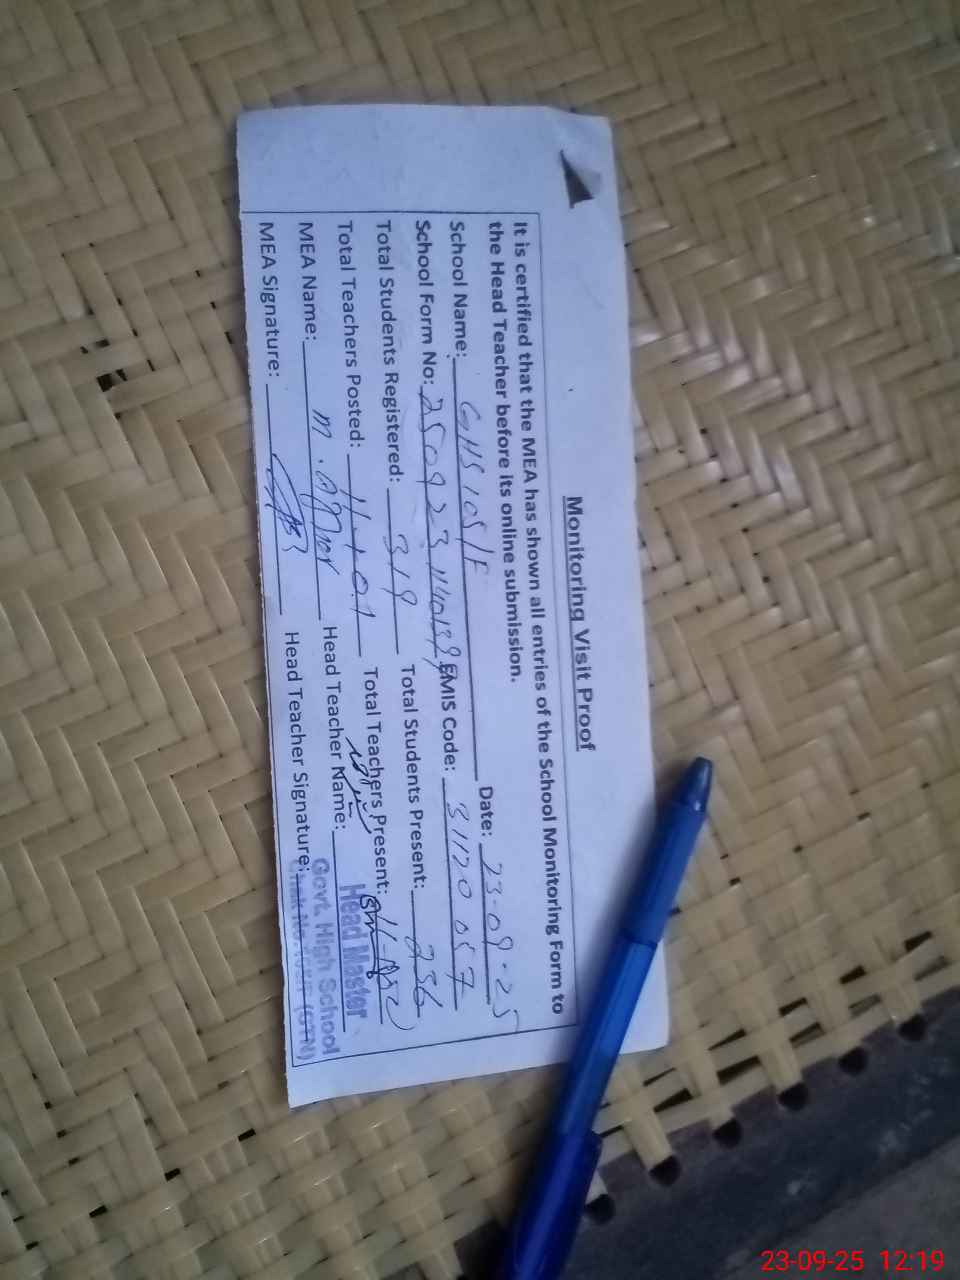 Monitoring Visit Proof
It is certified that the MEA has shown all entries of the School Monitoring Form to
the Head Teacher before its online submission.
School Name: GHS 105/F Date: 23-09-25
School Form No: EMIS Code: 31120057
Total Students Registered: 319 Total Students Present: 236
Total Teachers Posted: Total Teachers Present:
MEA Name: Head Teacher Name:
MEA Signature: Head Teacher Signature:
Head Master
Govt. High School
Chak No.
23-09-25 12:19